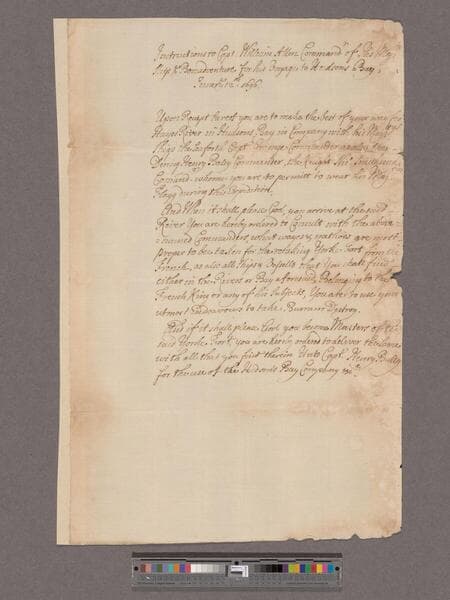 Instructions to Capt. William Allen Command.r of His Ma.ts
Ship ye Bonadventure for his Voyage to Hudsons Bay
1696.
Upon Receipt hereof you are to make the best of your way for
Hayes River in Hudsons Bay in Company with his Maj.tys
Ships the Seaforth Capt. Grange Commander and the
Dering Henry Baley Commander, the Knight
Comand whome you are to permitt to wear his
Flagg during this Expedition.
And When it shall please God, you arrive at the said
River You are hereby ordered to Consult with the above
named Commanders, what are most
proper to be taken for the retaking York Fort from the
French, as also all Ships or Vessells that you shall find
either in the Rivers or Bay aforesaid, Belonging to the
French King or any of his Subjects, You are to use your
utmost Endeavours to take, Burn or Destroy.
And if it shall please God you become Masters of the
said Yorke Fort, you are hereby ordered to deliver the same
with all that you find therein Unto Capt. Henry Baley
for the use of the Hudsons Bay Company